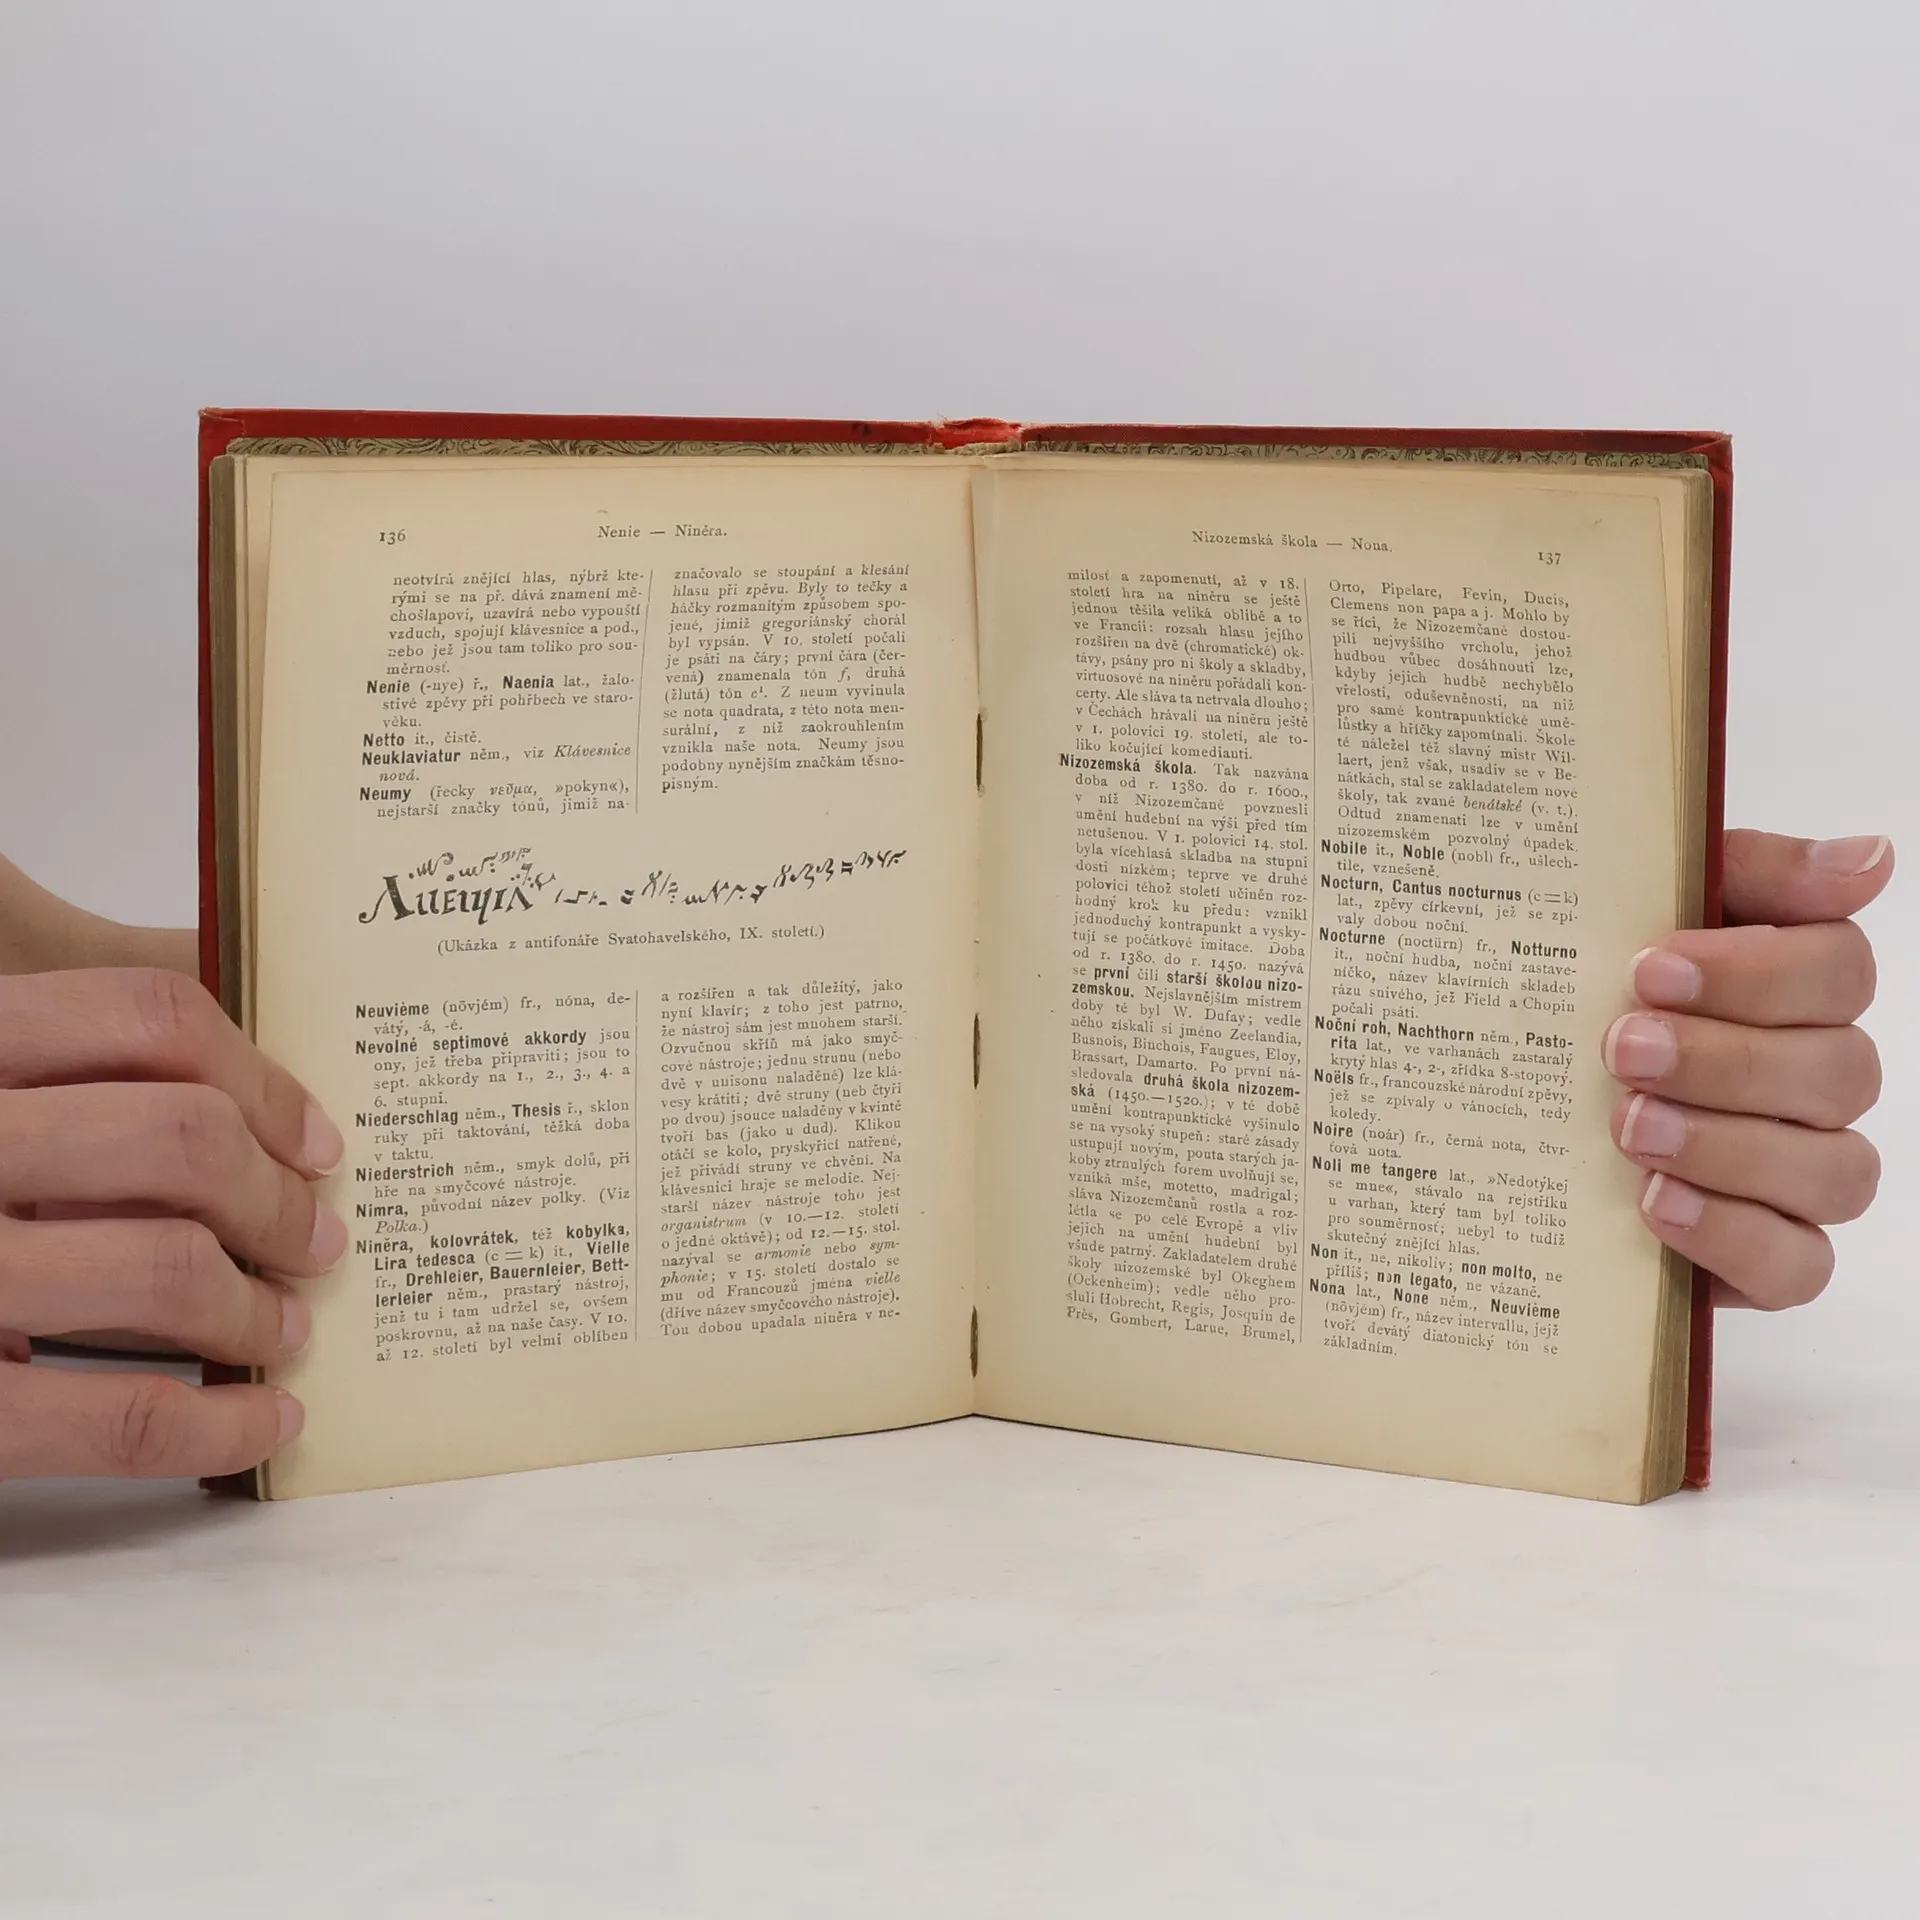 136
Nenie — Niněra.
neotvírá znějící hlas, nýbrž kte-
rými se na př. dává znamení mě-
chošlapovi, uzavírá nebo vypouští
vzduch, spojují klávesnice a pod.,
nebo jež jsou tam toliko pro sou-
měrnost.
Nenie (-nye) ř., Naenia lat., žalo-
stivé zpěvy při pohřbech ve staro-
věku.
Netto it., čistě.
Neuklaviatur něm., viz Klávesnice
nová.
Neumy (řecky νεῦμα, »pokyn«),
nejstarší značky tónů, jimiž na-
značovalo se stoupání a klesání
hlasu při zpěvu. Byly to tečky a
háčky rozmanitým způsobem spo-
jené, jimiž gregoriánský chorál
byl vypsán. V 10. století počali
je psáti na čáry; první čára (čer-
vená) znamenala tón f, druhá
(žlutá) tón c¹. Z neum vyvinula
se nota quadrata, z této nota men-
surální, z níž zaokrouhlením
vznikla naše nota. Neumy jsou
podobny nynějším značkám těsno-
pisným.
(Ukázka z antifonáře Svatohavelského, IX. století.)
Neuvième (növjém) fr., nóna, de-
vátý, -á, -é.
Nevolné septimové akkordy jsou
ony, jež třeba připraviti; jsou to
sept. akkordy na 1., 2., 3., 4. a
6. stupni.
Niederschlag něm., Thesis ř., sklon
ruky při taktování, těžká doba
v taktu.
Niederstrich něm., smyk dolů, při
hře na smyčcové nástroje.
Nimra, původní název polky. (Viz
Polka.)
Niněra, kolovrátek, též kobylka,
Lira tedesca (c = k) it., Vielle
fr., Drehleier, Bauernleier, Bett-
lerleier něm., prastarý nástroj,
jenž tu i tam udržel se, ovšem
poskrovnu, až na naše časy. V 10.
až 12. století byl velmi oblíben
a rozšířen a tak důležitý, jako
nyní klavír; z toho jest patrno,
že nástroj sám jest mnohem starší.
Ozvučnou skříň má jako smyč-
cové nástroje; jednu strunu (nebo
dvě v unisonu naladěné) lze klá-
vesy krátiti; dvě struny (neb čtyři
po dvou) jsouce naladěny v kvintě
tvoří bas (jako u dud). Klikou
otáčí se kolo, pryskyřicí natřené,
jež přivádí struny ve chvění. Na
klávesnici hraje se melodie. Nej-
starší název nástroje toho jest
organistrum (v 10.—12. století
o jedné oktávě); od 12.—15. stol.
nazýval se armonie nebo sym-
phonie; v 15. století dostalo se
mu od Francouzů jména vielle
(dříve název smyčcového nástroje).
Tou dobou upadala niněra v ne-
Nizozemská škola — Nona.
137
milost a zapomenutí, až v 18.
století hra na niněru se ještě
jednou těšila veliká oblibě a to
ve Francii: rozsah hlasu jejího
rozšířen na dvě (chromatické) ok-
távy, psány pro ni školy a skladby,
virtuosové na niněru pořádali kon-
certy. Ale sláva ta netrvala dlouho;
v Čechách hrávali na niněru ještě
v 1. polovici 19. století, ale to-
liko kočující komedianti.
Nizozemská škola. Tak nazvána
doba od r. 1380. do r. 1600.,
v níž Nizozemčané povznesli
umění hudební na výši před tím
netušenou. V 1. polovici 14. stol.
byla vícehlasá skladba na stupni
dosti nízkém; teprve ve druhé
polovici téhož století učiněn roz-
hodný krok ku předu: vznikl
jednoduchý kontrapunkt a vysky-
tují se počátkové imitace. Doba
od r. 1380. do r. 1450. nazývá
se první čili starší školou nizo-
zemskou. Nejslavnějším mistrem
doby té byl W. Dufay; vedle
něho získali si jméno Zeelandia,
Busnois, Binchois, Faugues, Eloy,
Brassart, Damarto. Po první ná-
sledovala druhá škola nizozem-
ská (1450.—1520.); v té době
umění kontrapunktické vyšinulo
se na vysoký stupeň: staré zásady
ustupují novým, pouta starých ja-
koby ztrnulých forem uvolňují se,
vzniká mše, motetto, madrigal;
sláva Nizozemčanů rostla a roz-
létla se po celé Evropě a vliv
jejich na umění hudební byl
všude patrný. Zakladatelem druhé
školy nizozemské byl Okeghem
(Ockenheim); vedle něho pro-
sluli Hobrecht, Regis, Josquin de
Près, Gombert, Larue, Brumel,
Orto, Pipelare, Fevin, Ducis,
Clemens non papa a j. Mohlo by
se říci, že Nizozemčané dostou-
pili nejvyššího vrcholu, jehož
hudbou vůbec dosáhnouti lze,
kdyby jejich hudbě nechybělo
vřelosti, oduševněnosti, na niž
pro samé kontrapunktické umě-
lůstky a hříčky zapomínali. Škole
té náležel též slavný mistr Wil-
laert, jenž však, usadiv se v Be-
nátkách, stal se zakladatelem nové
školy, tak zvané benátské (v. t.).
Odtud znamenati lze v umění
nizozemském pozvolný úpadek.
Nobile it., Noble (nobl) fr., ušlech-
tile, vznešeně.
Nocturn, Cantus nocturnus (c = k)
lat., zpěvy církevní, jež se zpí-
valy dobou noční.
Nocturne (noctürn) fr., Notturno
it., noční hudba, noční zastave-
níčko, název klavírních skladeb
rázu snivého, jež Field a Chopin
počali psáti.
Noční roh, Nachthorn něm., Pasto-
rita lat., ve varhanách zastaralý
krytý hlas 4-, 2-, zřídka 8-stopový.
Noëls fr., francouzské národní zpěvy,
jež se zpívaly o vánocích, tedy
koledy.
Noire (noár) fr., černá nota, čtvr-
ťová nota.
Noli me tangere lat., »Nedotýkej
se mne«, stávalo na rejstříku
u varhan, který tam byl toliko
pro souměrnost; nebyl to tudíž
skutečný znějící hlas.
Non it., ne, nikoliv; non molto, ne
příliš; non legato, ne vázaně.
Nona lat., None něm., Neuvième
(növjém) fr., název intervallu, jejž
tvoří devátý diatonický tón se
základním.